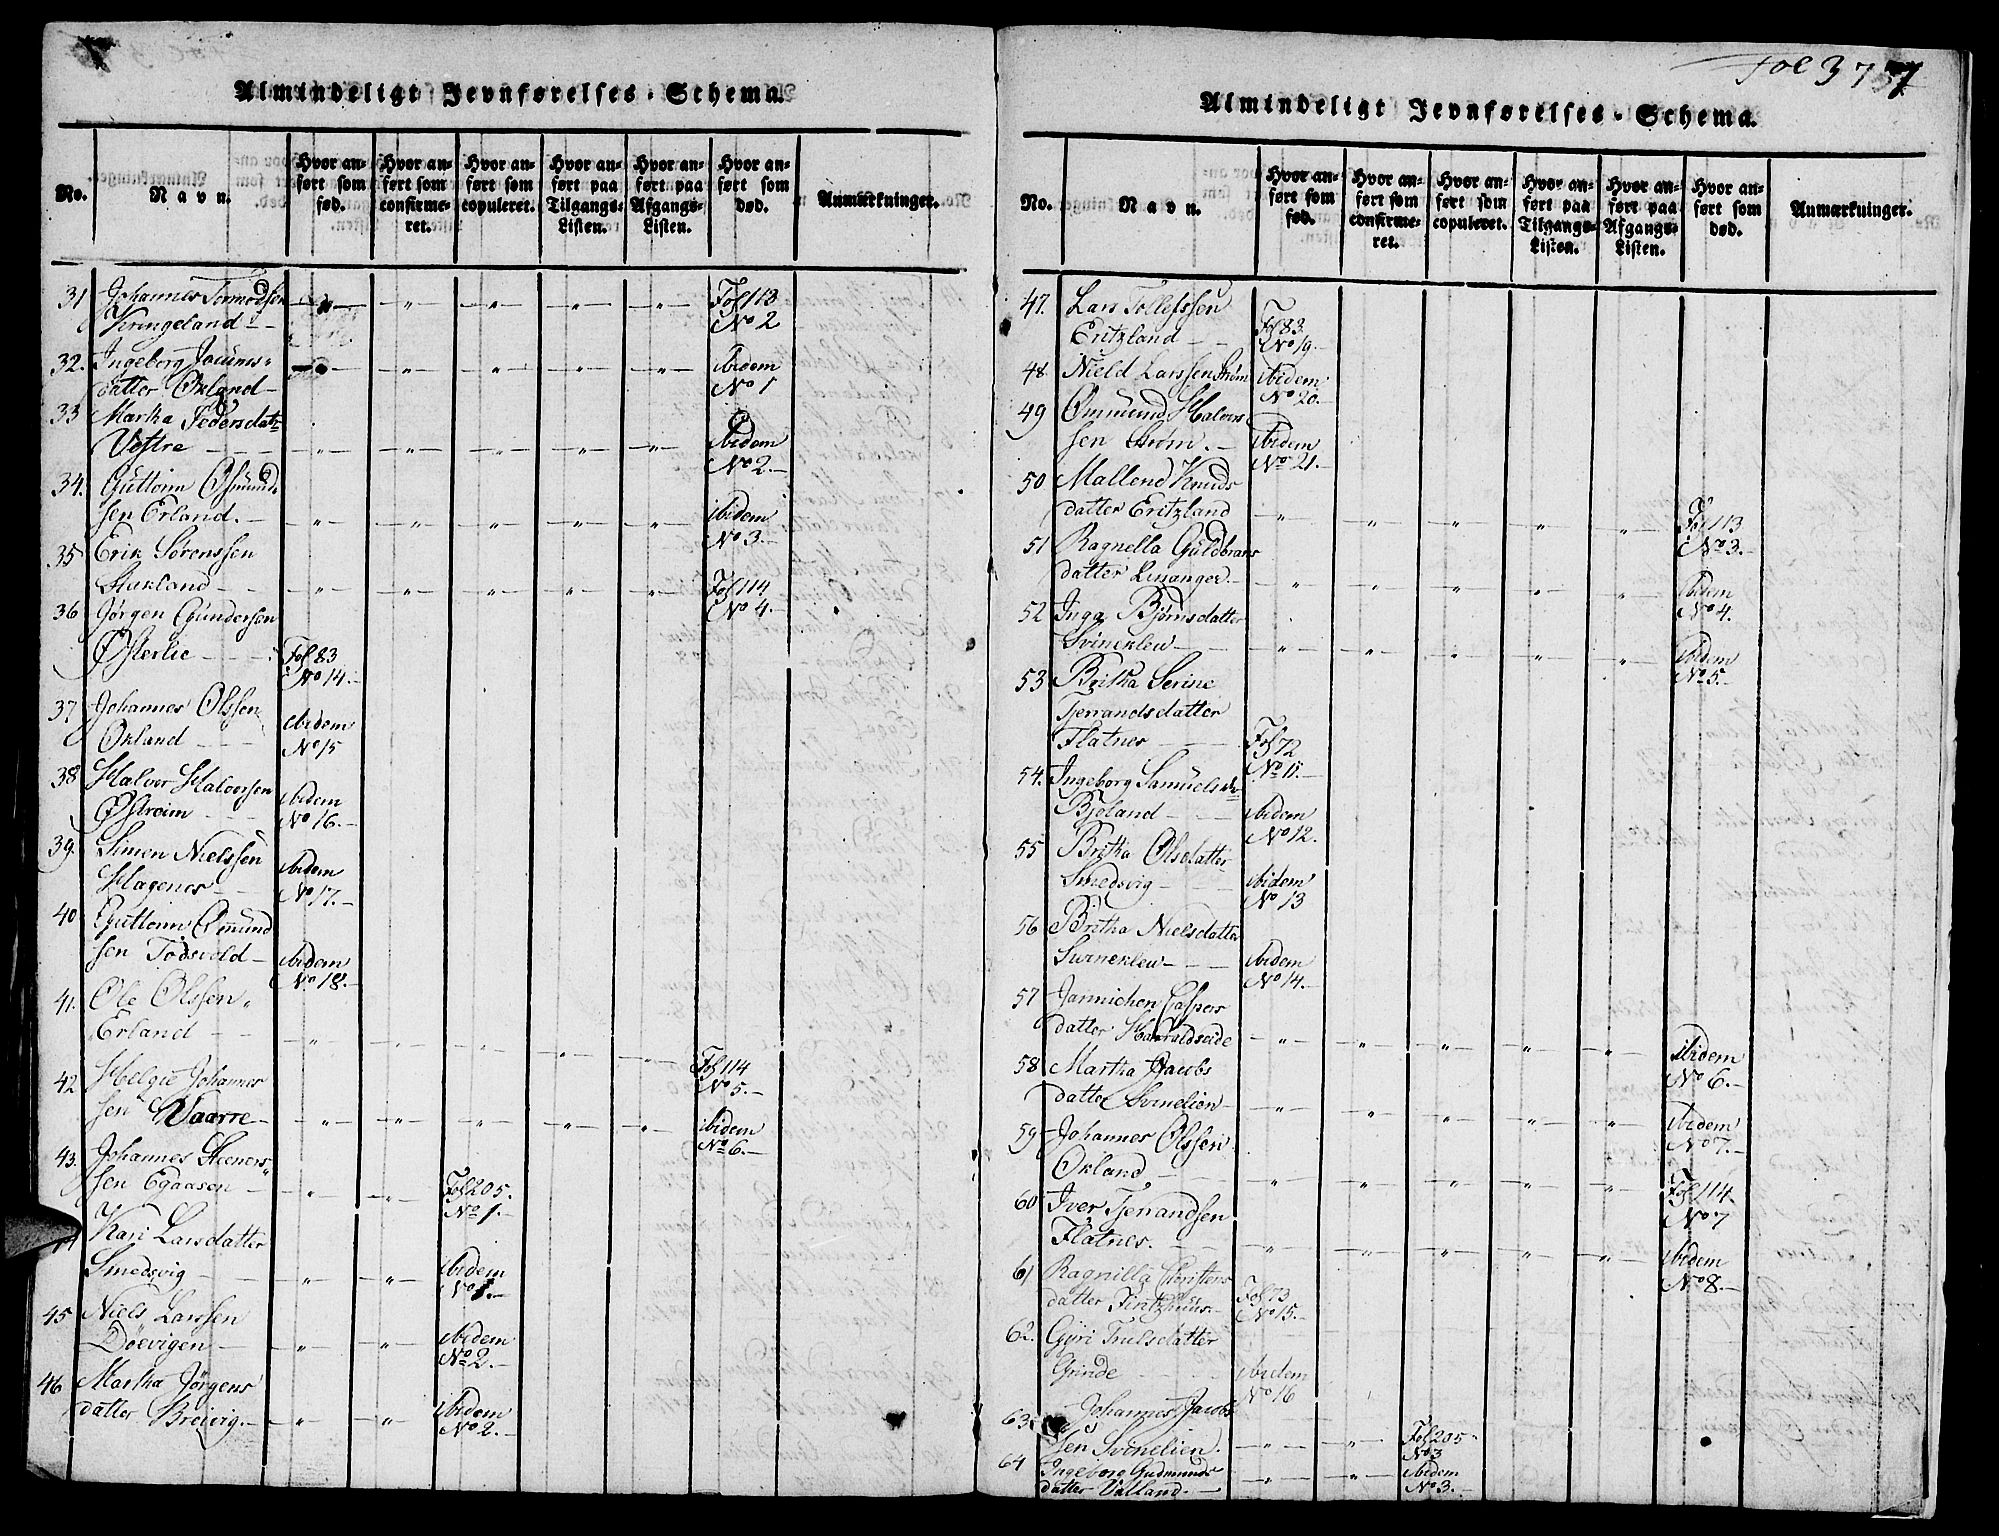 Almindeligt Jevnførelses-Schema.
No.
Navn.
Hvor anført som fød.
Hvor anført som confirmeret.
Hvor anført som copuleret.
Hvor anført paa Tilgangs-Listen.
Hvor anført paa Afgangs-Listen.
Hvor anført som død.
Anmærkninger.
31 Johannes Tormodsen — " — " — " — " — " — Fol 113
Kringeland — No 2
32. Ingeborg — " — " — " — " — ibidem
datter Økland — No 1
33 Martha Pedersdatr
Vestre — " — " — " — " — " — ibidem
No 2. —
34. Guttorm Osmund
sen Erland. — " — " — " — " — " — ibidem
No 3. —
35 Erik Sørenssen
Stakland — " — " — " — " — " — Fol 114
No 4. —
36 Jørgen Gundersen
Østerlie — Fol 83
No 14. —
37 Johannes Olssen
Økland — ibidem
No 15
38 Halvor Halvorsen
Østreim — ibidem
No 16. —
39. Simen Nielssen
Hagenes — ibidem
No 17. —
40 Guttorm Omund
sen Todsvold — ibidem
No 18. —
41. Ole Olssen
Erland — " — " — " — " — " — Fol 114
No 5. —
42 Helgie Johannes
sen Vaarre — " — " — " — " — " — ibidem
No 6. —
43. Johannes Steeners
sen Egaasen — " — " — Fol 205.
No 1. —
Kari Larsdatter
Smedsvig — " — " — ibidem
No 1. —
45 Niels Larssen
Døevigen — " — " — ibidem
No 2. —
46 Martha Jørgens
datter Breivig. — " — " — ibidem
No 2. —
Fol 37
Almindeligt Jevnførelses-Schema.
No.
Navn.
Hvor anført som fød.
Hvor anført som confirmeret.
Hvor anført som copuleret.
Hvor anført paa Tilgangs-Listen.
Hvor anført paa Afgangs-Listen.
Hvor anført som død.
Anmærkninger.
47. Lars Tollefssen
Eritzland — Fol 83
No 19. —
48 Nield Larssen Strøm ibidem
No 20. —
49 Omund Halvors
sen Strøm. — ibidem
No 21. —
50 Mallene Knuds
datter Eritzland — " — " — " — " — " — Fol 113
No 3. —
51 Ragnella Guldbrans
datter Lusanger — " — " — " — " — " — ibidem
No 4.
52 Inga Bjørnsdatter
Svineklew — " — " — " — " — " — ibidem
No 5. —
53 Britha Serine
Tjerrandsdatter
Flatnes — Fol 72
No 11. —
54. Ingeborg Samuelsdr
Bjeland — ibidem
No 12.
55 Britha Olsdatter
Smedsvig — ibidem
No 13
56 Britha Nielsdatter
Svineklew — ibidem
No 14. —
57 Jannichen Caspers
datter Haraldseide — " — " — " — " — " — ibidem
No 6. —
58 Martha Jacobs
datter Svinelien — " — " — " — " — " — ibidem
No 7. —
59 Johannes Olssen
Økland. — " — " — " — " — " — Fol 114
No 7
60 Iver Tjerrandsen
Flatnes. — " — " — " — " — " — ibidem
No 8. —
61 Ragnilla Christens
datter — Fol 73
No 15. —
62. Gjøri Trulsdatter
Grinde — ibidem
No 16
63. Johannes Jacob
sen Svinelien. — " — " — Fol 205
No 3
64 Ingeborg Gudmunds — " — " — ibidem
datter Valland. — No 3. —